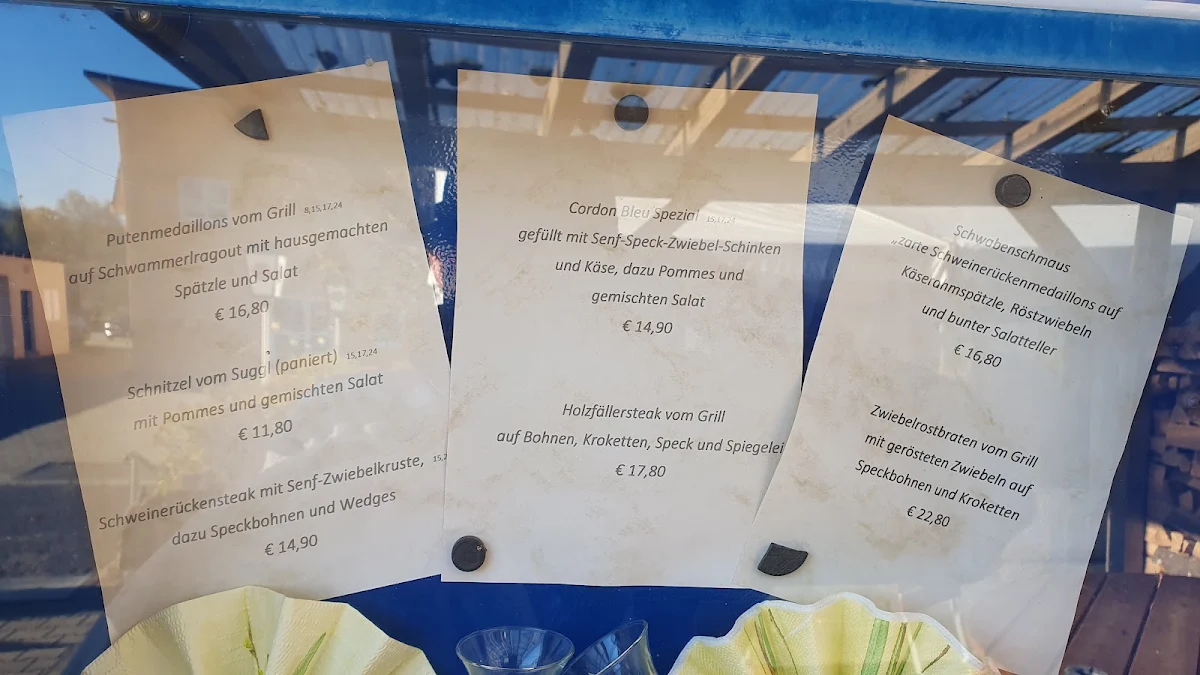 Putenmedaillons vom Grill 8,15,17,24
auf Schwammerlragout mit hausgemachten
Spätzle und Salat
€ 16,80
Schnitzel vom Suggl (paniert) 15,17,24
mit Pommes und gemischten Salat
€ 11,80
Schweinerückensteak mit Senf-Zwiebelkruste, 15,2
dazu Speckbohnen und Wedges
€ 14,90
Cordon Bleu Spezial 15,17,24
gefüllt mit Senf-Speck-Zwiebel-Schinken
und Käse, dazu Pommes und
gemischten Salat
€ 14,90
Holzfällersteak vom Grill
auf Bohnen, Kroketten, Speck und Spiegelei
€ 17,80
Schwabenschmaus
„zarte Schweinerückenmedaillons auf
Käserahmspätzle, Röstzwiebeln
und bunter Salatteller
€ 16,80
Zwiebelrostbraten vom Grill
mit gerösteten Zwiebeln auf
Speckbohnen und Kroketten
€ 22,80